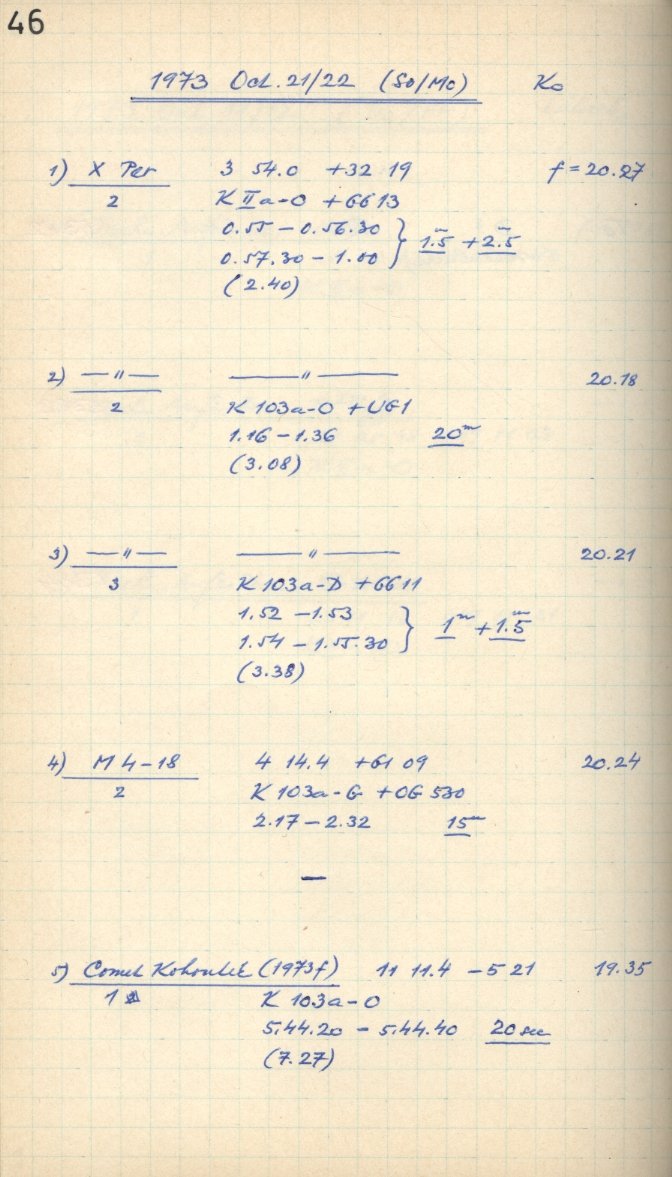 46
1973 Oct. 21/22 (So/Mo) Ko
1) X Per 3 54.0 +32 19 f = 20.27
2 K IIa-O + GG 13
0.55 – 0.56.30 } 1.5ᵐ + 2.5ᵐ
0.57.30 – 1.00
(2.40)
2) — " — — " — 20.18
2 K 103a-O + UG1
1.16 – 1.36 20ᵐ
(3.08)
3) — " — — " — 20.21
3 K 103a-D + GG 11
1.52 – 1.53 } 1ᵐ + 1.5ᵐ
1.54 – 1.55.30
(3.38)
4) M 4-18 4 14.4 +61 09 20.24
2 K 103a-G + OG 530
2.17 – 2.32 15ᵐ
—
5) Comet Kohoutek (1973f) 11 11.4 –5 21 19.35
1 K 103a-O
5.44.20 – 5.44.40 20 sec
(7.27)